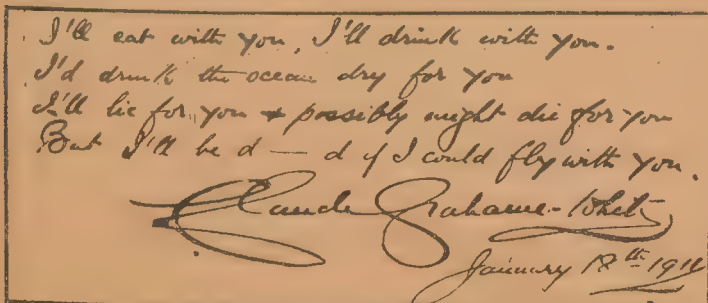 I'll eat with you, I'll drink with you.
I'd drink the ocean dry for you
I'll lie for you & possibly might die for you
But I'll be d — d if I could fly with you.
Claude Grahame-White
January 18th 1911